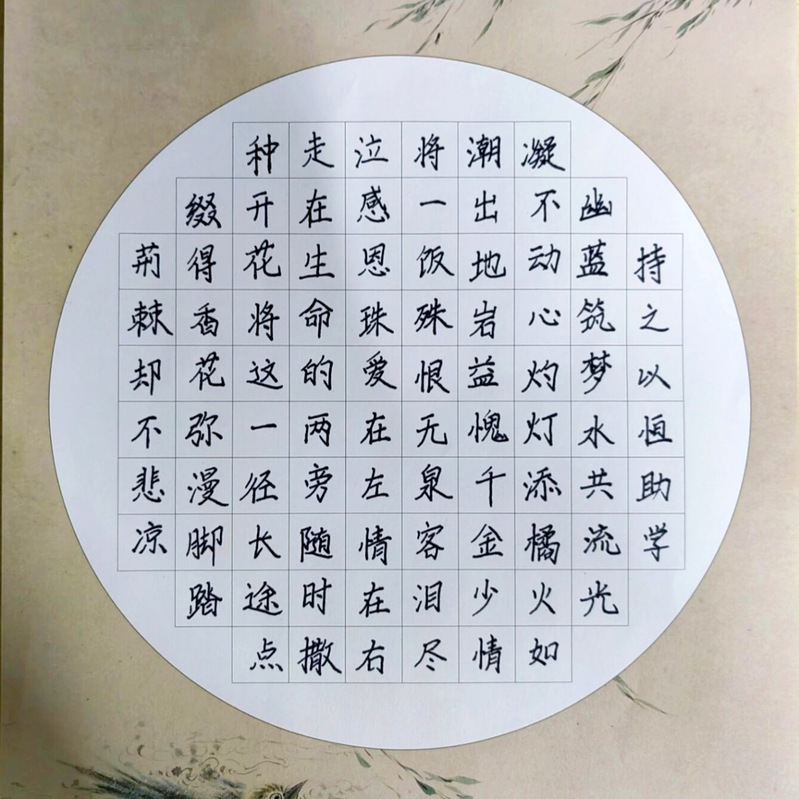 持之以恒助学
幽蓝筑梦水共流光
凝不动心灼灯添橘火如
潮出地岩益愧千金少情
将一饭殊恨无泉客泪尽
泣感恩珠爱在左情在右
走在生命的两旁随时撒
种开花将这一径长途点
缀得香花弥漫脚踏
荆棘却不悲凉